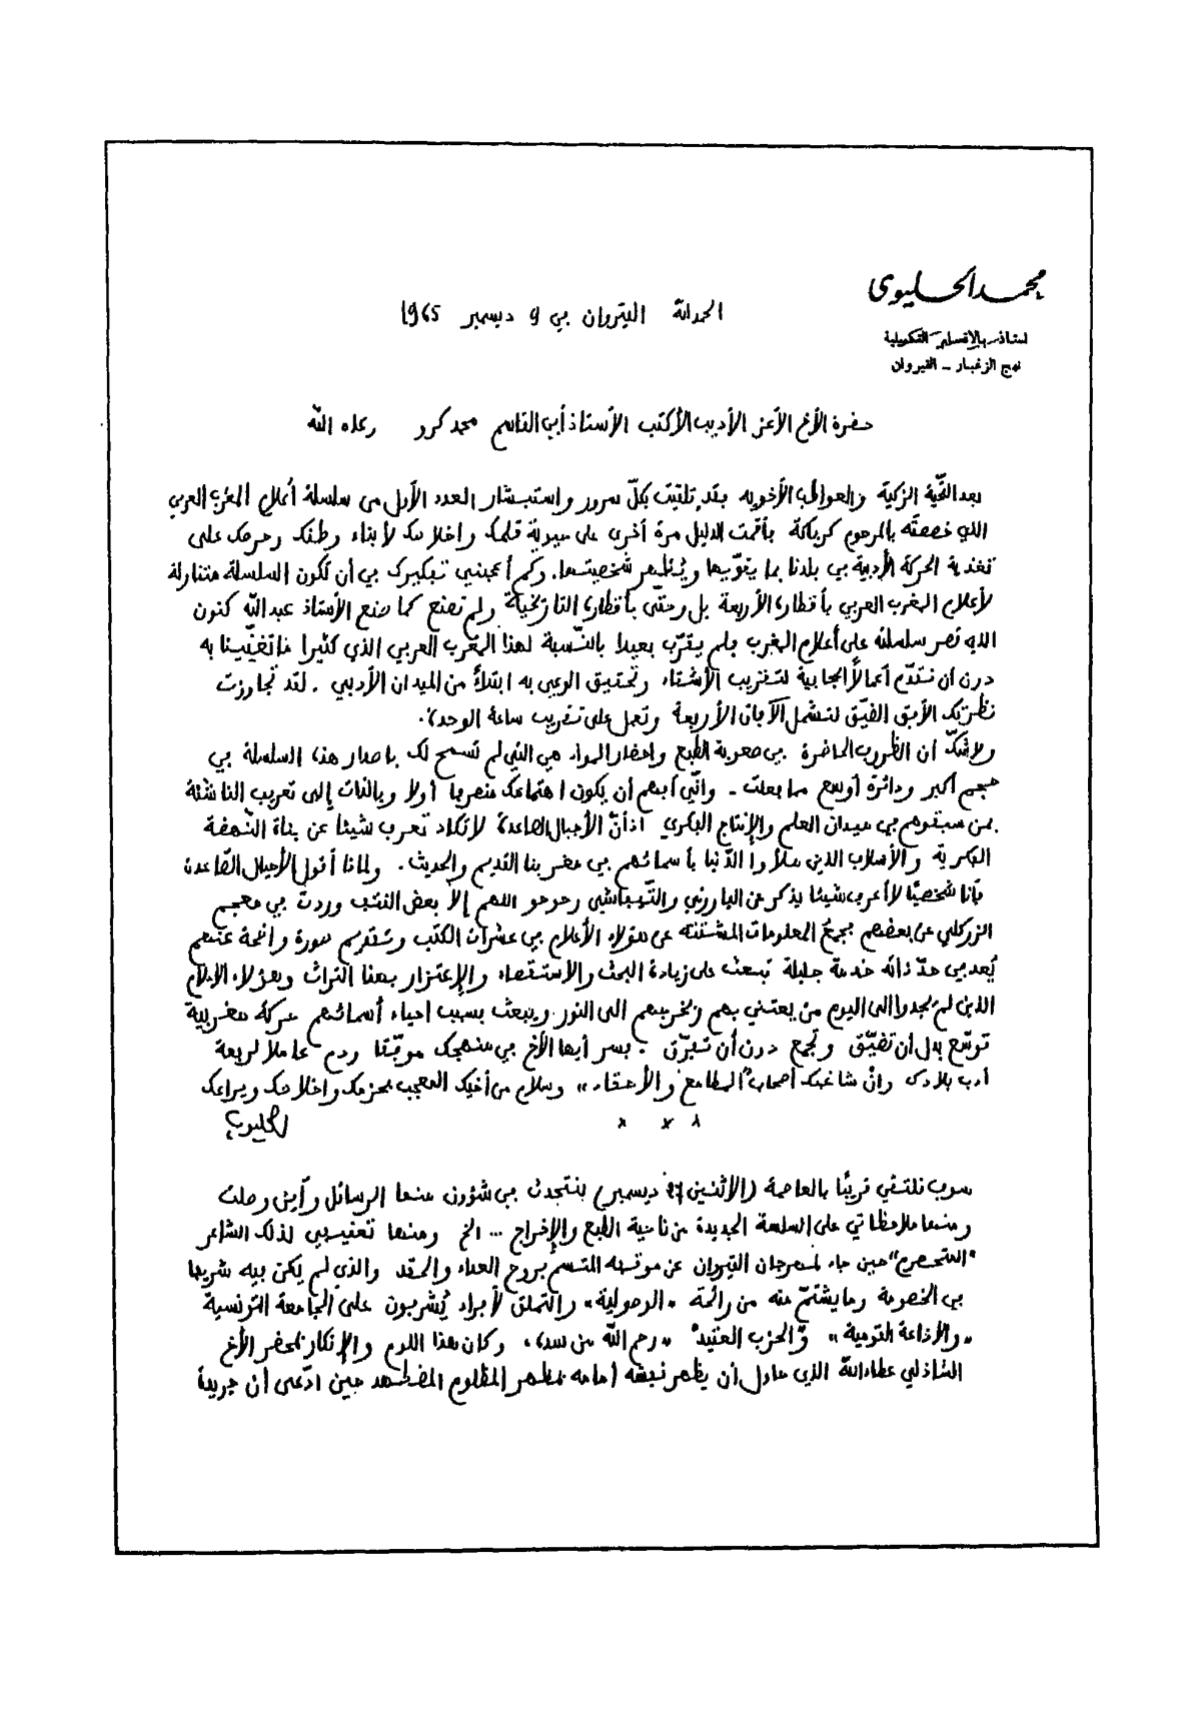 محمد الحليوي
استاذ بالاقسام التكميلية
نهج الزغبار - القيروان
الحمد لله القيروان في 9 ديسمبر 1965
حضرة الأخ الأعز الأديب الأكتب الأستاذ أبي القاسم محمد كرو رعاه الله
بعد التحية الزكية والعواطف الأخوية فقد تلقيت بكلّ سرور واستبشار العدد الأول من سلسلة أعلام المغرب العربي
الذي خصصته بالمرحوم كرباكة فأقمت الدليل مرة أخرى على حيوية قلمك واخلاصك لأبناء وطنك وحرصك على
تغذية الحركة الأدبية في بلدنا بما يقوّيها ويُظهر شخصيتها. وكم أعجبني تفكيرك في أن تكون السلسلة متناولة
لأعلام المغرب العربي بأقطاره الأربعة بل وحتّى بأقطاره التاريخيّة ولم تصنع كما صنع الأستاذ عبد الله كنون
الذي قصر سلسلته على أعلام المغرب فلم يقرّب بعيدا بالنّسبة لهذا المغرب العربي الذي كثيرا ما تغنّينا به
دون أن نقدّم أعمالاً إيجابية لتقريب الأشتات وتحقيق الوعي به ابتداءً من الميدان الأدبي . لقد تجاوزت
نظرتك الأفق الضيّق لتشمل الآفاق الأربعة وتعمل على تقريب ساعة الوحدة.
ولا شكّ أن الظروف الحاضرة في صعوبة الطبع واحضار المواد هي التي لم تسمح لك باصدار هذه السلسلة في
حجم أكبر ودائرة أوسع مما فعلت - وانّي أفهم أن يكون اهتمامك منصرفا أولا وبالذات إلى تعريف الناشئة
بمن سبقوهم في ميدان العلم والإنتاج الفكري اذ أنّ الأجيال الصاعدة لا تكاد تعرف شيئا عن بناة النّهضة
الفكرية والأسلاف الذين ملأوا الدّنيا بأسمائهم في مغربنا القديم والحديث. ولماذا أقول الأجيال الصّاعدة
فأنا شخصيّا لا أعرف شيئا يذكر عن الباروني والتّبباشي وحوحو اللهم إلاّ بعض النتف وردت في معجم
الزركلي عن بعضهم فجمعُ المعلومات المشتتة عن هؤلاء الأعلام في عشرات الكتب وتقديم صورة واضحة عنهم
يُعد في حدّ ذاته خدمة جليلة تبعث على زيادة البحث والاستقصاء والإعتزاز بهذا التراث وهؤلاء الاعلام
الذين لم يجدوا الى اليوم من يعتني بهم ويخرجهم الى النور ويبعث بسبب احياء أسمائهم حركة مغربية
توسّع بدل أن تضيّق وتجمع دون أن تفرّق . فسر أيها الأخ في منهجك موفّقا ودم عاملا لرفعة
أدب بلادك وانْ شاغبك أصحابُ المطامع والأحقاد، وسلام من أخيك المعجب بحزمك واخلاصك ويراعك
الحليوي
x x x
سوف نلتقي قريبًا بالعاصمة (الاثنين 27 ديسمبر) فنتحدث في شؤون منها الرسائل وأين وصلت
ومنها ملاحظاتي على السلسلة الجديدة من ناحية الطبع والإخراج ... الخ ومنها تعنيفي لذلك الشاعر
"المتحصرم" حين جاء لمهرجان القيروان عن موقفه المتسم بروح العداء والحقد والذي لم يكن فيه شريفا
في الخصومة وما يشتمّ منه من رائحة «الوصولية» والتملق لأفراد يُشرفون على الجامعة التونسية
«والاذاعة القومية» و"الحزب العتيد" «رحم الله من سد»، وكان هذا اللوم والإنكار بمحضر الأخ
الشاذلي عطاء الله الذي حاول أن يظهر نفسه أمامه بمظهر المظلوم المضطهد حين ادّعى أن جريدة